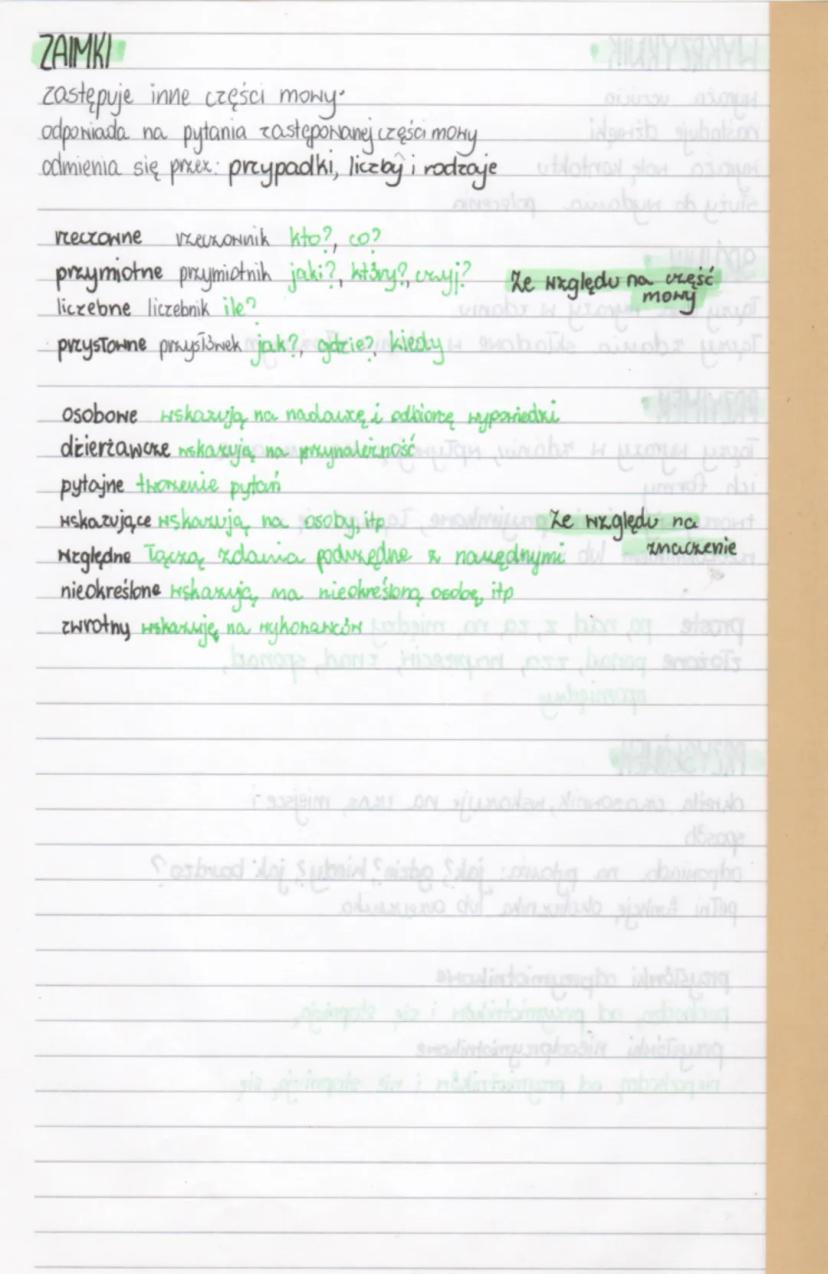 ZAIMKI
zastępuje inne części mowy.
odpowiada na pytania zastępowanej części mowy
odmienia się przez: przypadki, liczby i rodzaje
rzeczowne rzeczownik kto?, co?
przymiotne przymiotnik jaki?, który?, czyj?
Ze względu na część
mowy
liczebne liczebnik ile?
przysłowne przysłówek jak?, gdzie?, kiedy
osobowe wskazują na nadawcę i odbiorcę wypowiedzi
dzierżawcze wskazują na przynależność
pytajne tworzenie pytań
wskazujące wskazują na osoby, itp
Ze względu na
znaczenie
względne łączą zdania podrzędne z nadrzędnymi
nieokreślone wskazują na nieokreśloną osobę, itp
zwrotny wskazuję na wykonawców